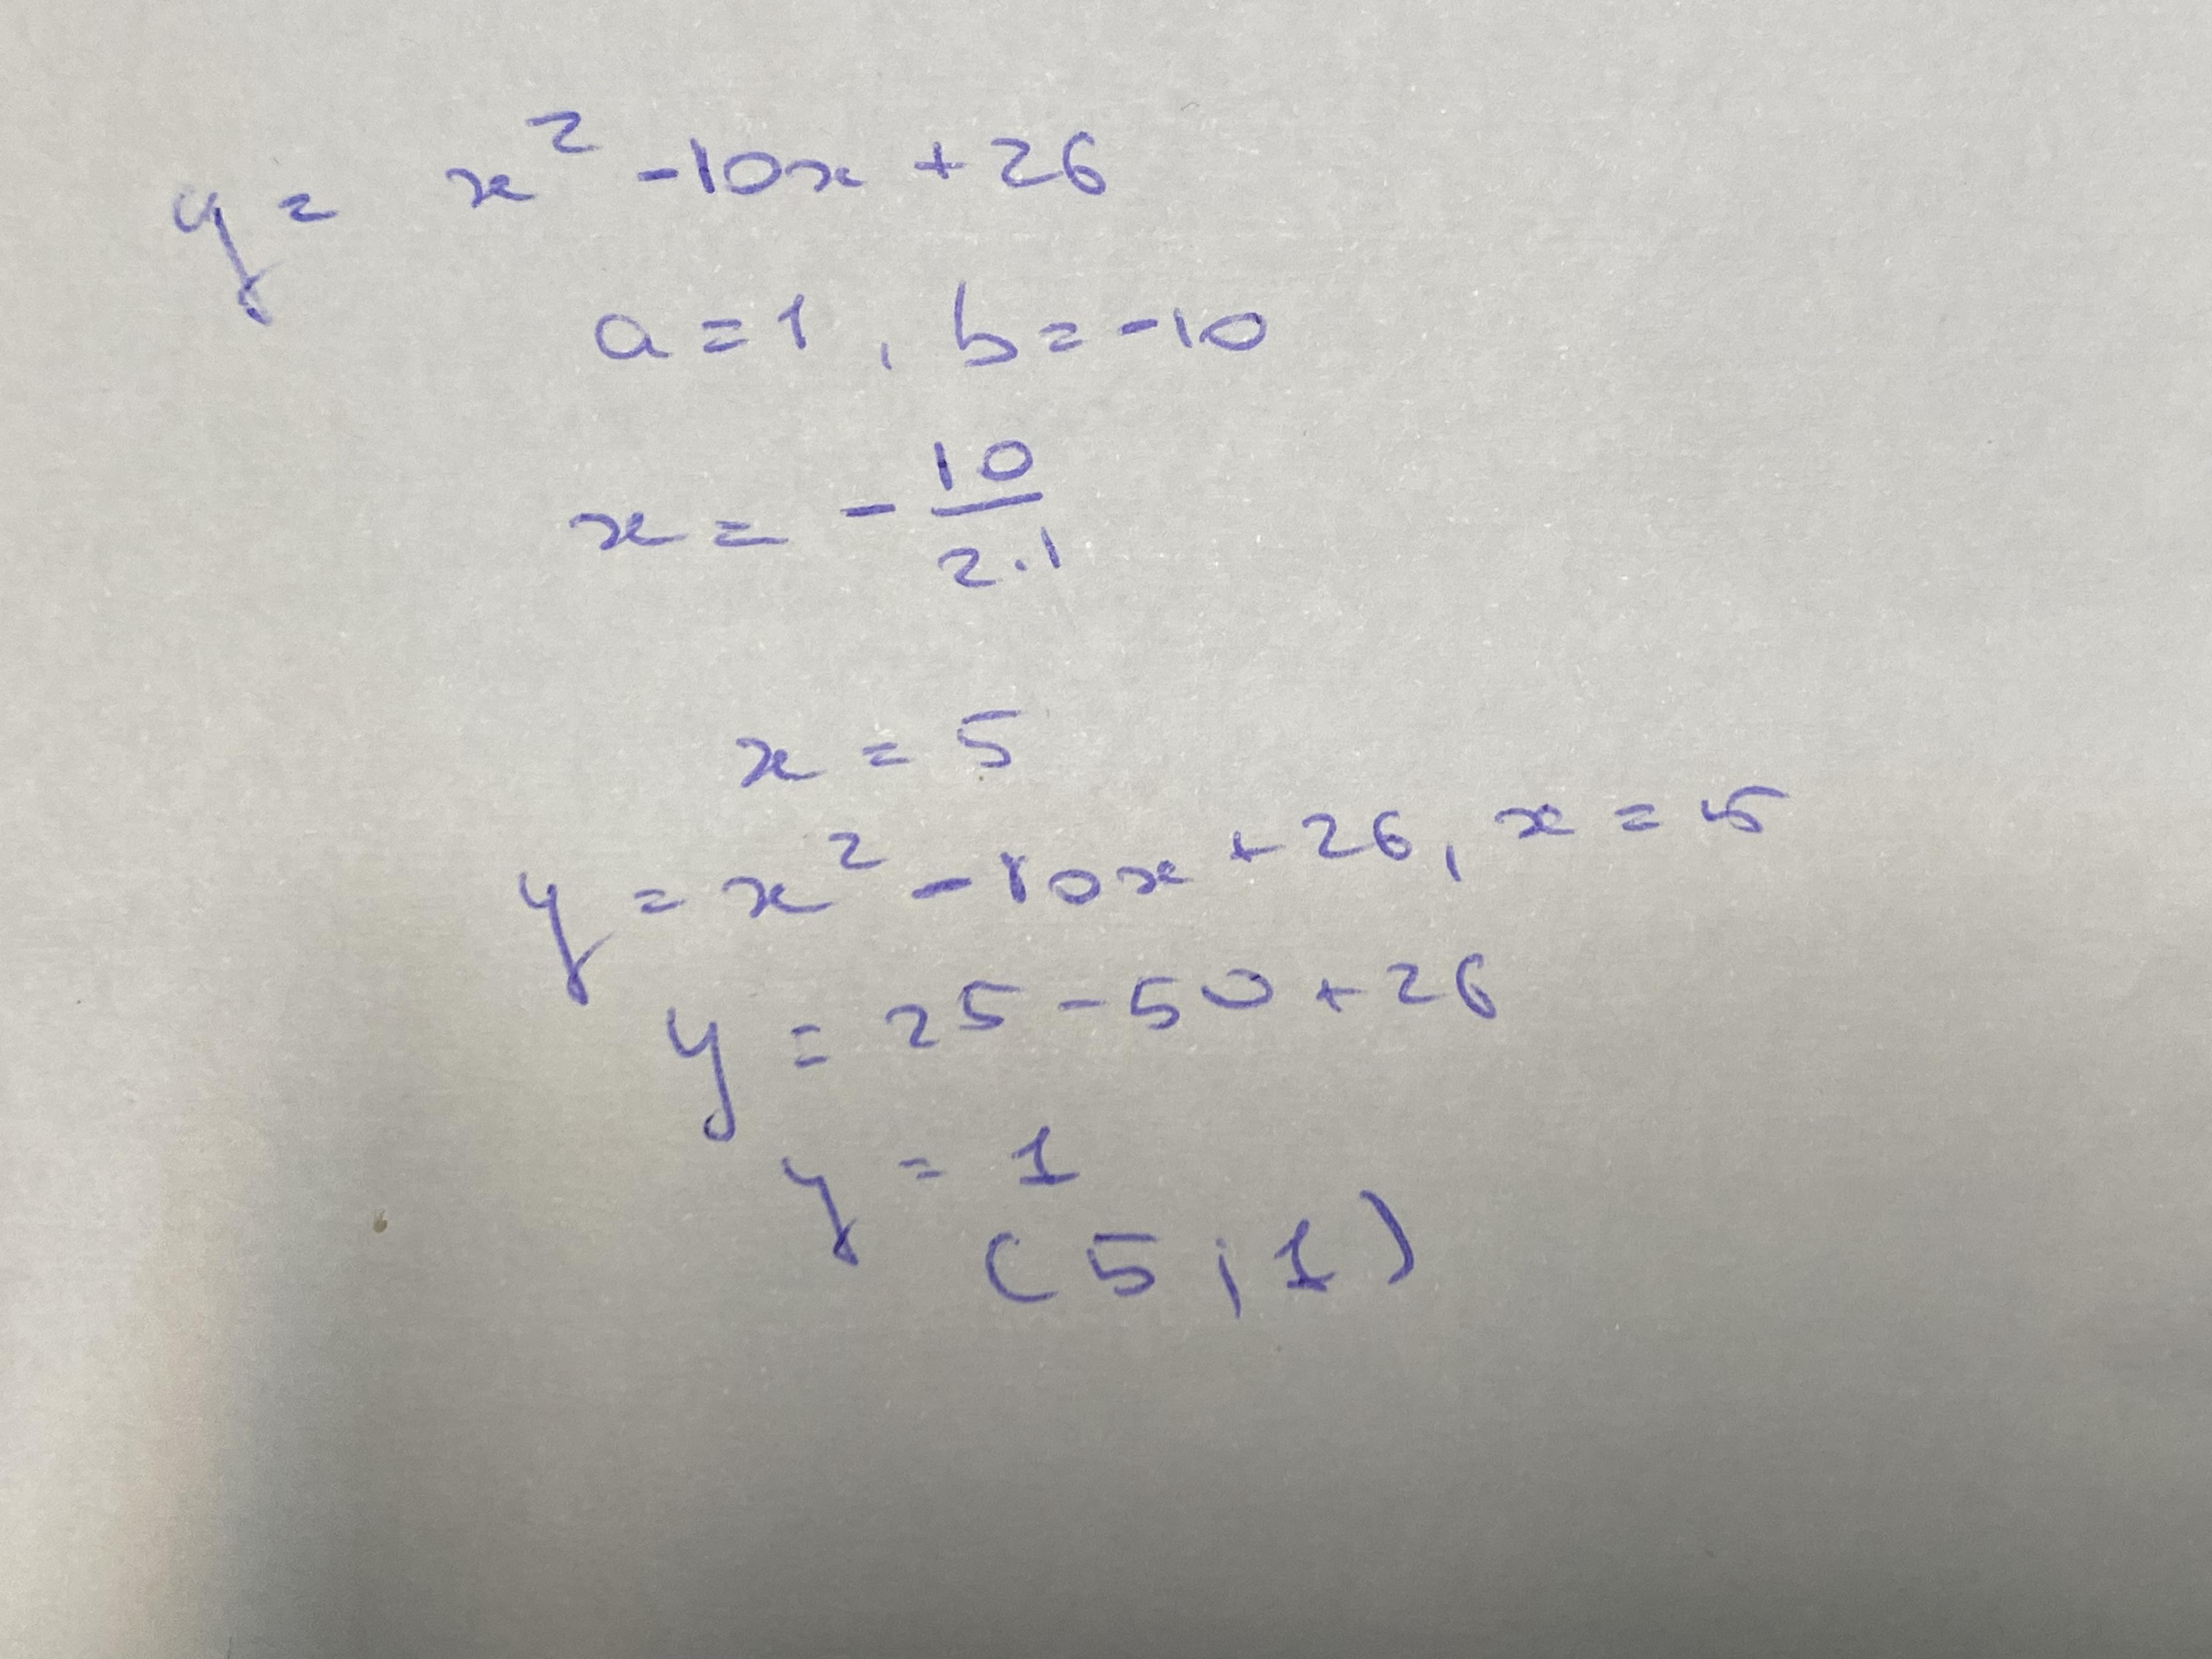 y = x² -10x + 26
a = 1, b = -10
x = - 10/2·1
x = 5
y = x² - 10x + 26, x = 5
y = 25 - 50 + 26
y = 1
(5; 1)